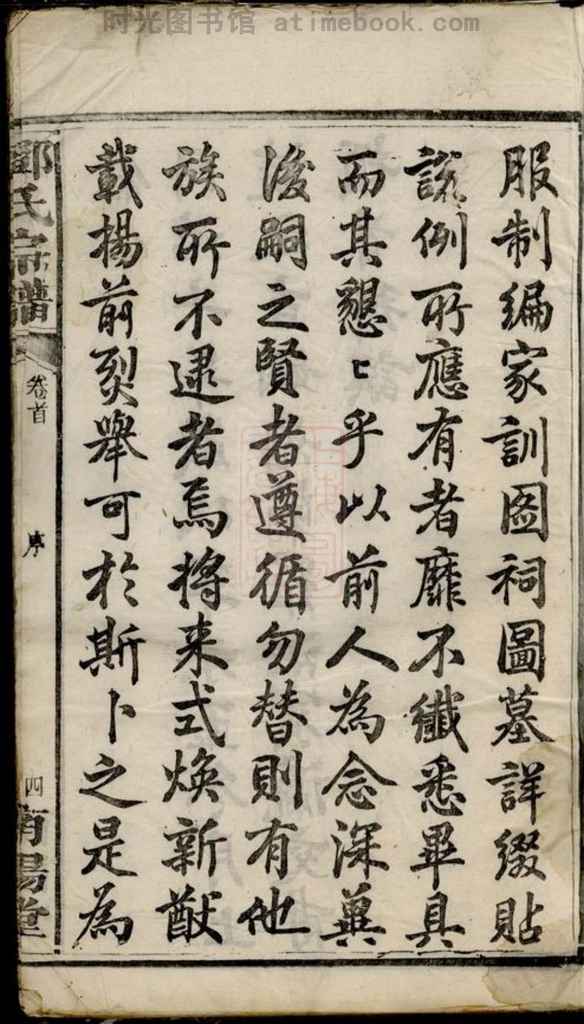 时光图书馆 atimebook.com
服制編家訓圖祠圖墓詳綴貼
説例所應有者靡不纖悉畢具
而其懇〻乎以前人為念深冀
後嗣之賢者遵循勿替則有他
族所不逮者焉將来式煥新猷
載揚前烈舉可於斯卜之是為
鄧氏宗譜
卷首
序
四
南陽堂